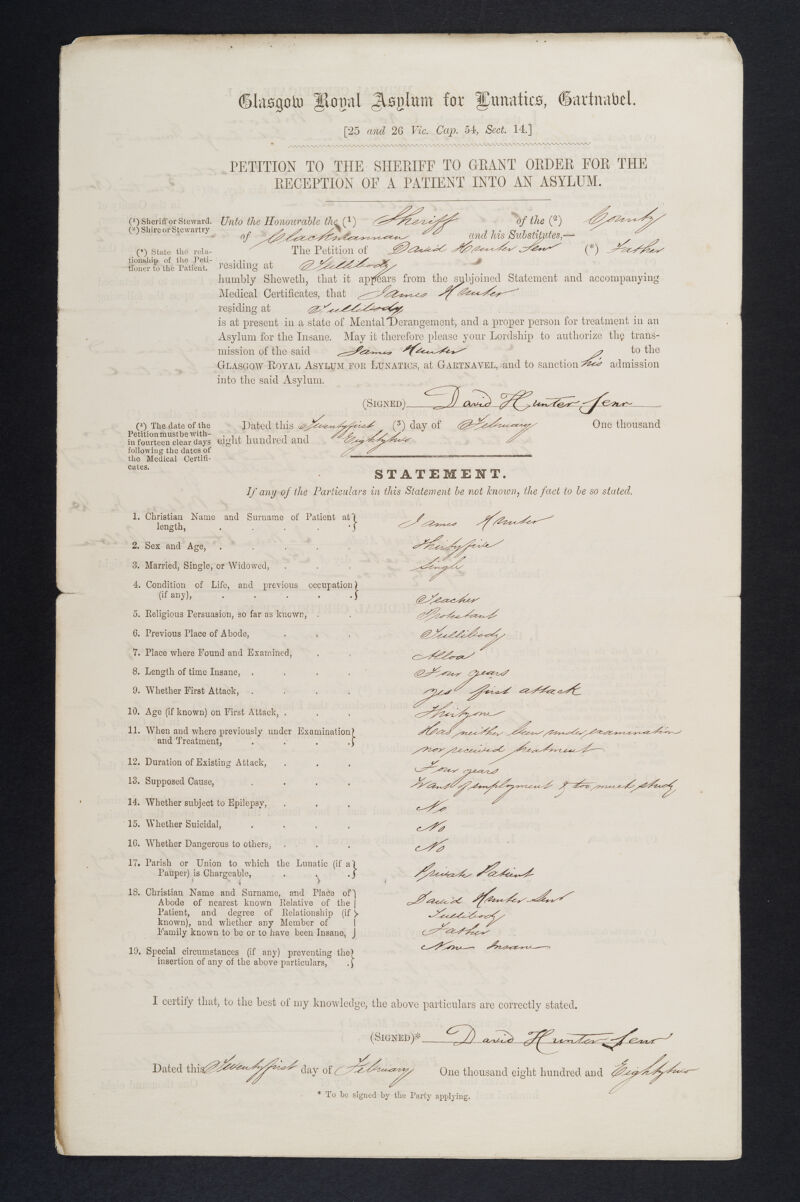 Glasgow Royal Asylum for Lunatics, Gartnavel.
[25 and 26 Vic. Cap. 54, Sect. 14.]
PETITION TO THE SHERIFF TO GRANT ORDER FOR THE
RECEPTION OF A PATIENT INTO AN ASYLUM.
(¹) Sheriff or Steward.
(²) Shire or Stewartry
(*) State the rela-
tionship of the Peti-
tioner to the Patient.
Unto the Honourable the (1) Sheriff of the (2) County
of Clackmannan and his Substitutes,—
The Petition of David Hunter Senr (*) Father
residing at Tullibody
humbly Sheweth, that it appears from the subjoined Statement and accompanying
Medical Certificates, that James Hunter
residing at Tullibody
is at present in a state of Mental Derangement, and a proper person for treatment in an
Asylum for the Insane. May it therefore please your Lordship to authorize the trans-
mission of the said James Hunter to the
GLASGOW ROYAL ASYLUM FOR LUNATICS, at GARTNAVEL, and to sanction his admission
into the said Asylum.
(SIGNED) David Hunter Senr
(³) The date of the
Petition must be with-
in fourteen clear days
following the dates of
the Medical Certifi-
cates.
Dated this Twentyfirst (3) day of February One thousand
eight hundred and Eightytwo
STATEMENT.
If any of the Particulars in this Statement be not known, the fact to be so stated.
1. Christian Name and Surname of Patient at
length, James Hunter
2. Sex and Age, Thirtyfive
3. Married, Single, or Widowed, Single
4. Condition of Life, and previous occupation
(if any), Teacher
5. Religious Persuasion, so far as known, Protestant
6. Previous Place of Abode, Tullibody
7. Place where Found and Examined, Alloa
8. Length of time Insane, Four years
9. Whether First Attack, yes first attack
10. Age (if known) on First Attack, Thirtyone
11. When and where previously under Examination
and Treatment, Has neither been under examination
nor received treatment
12. Duration of Existing Attack, Four years
13. Supposed Cause, Want of employment & too much study
14. Whether subject to Epilepsy, No
15. Whether Suicidal, No
16. Whether Dangerous to others, No
17. Parish or Union to which the Lunatic (if a
Pauper) is Chargeable, Private Patient
18. Christian Name and Surname, and Place of
Abode of nearest known Relative of the
Patient, and degree of Relationship (if
known), and whether any Member of
Family known to be or to have been Insane,
David Hunter Senr
Tullibody
Father
None Insane
19. Special circumstances (if any) preventing the
insertion of any of the above particulars,
I certify that, to the best of my knowledge, the above particulars are correctly stated.
(SIGNED)* David Hunter Senr
Dated this Twentyfirst day of February One thousand eight hundred and Eightytwo
* To be signed by the Party applying.